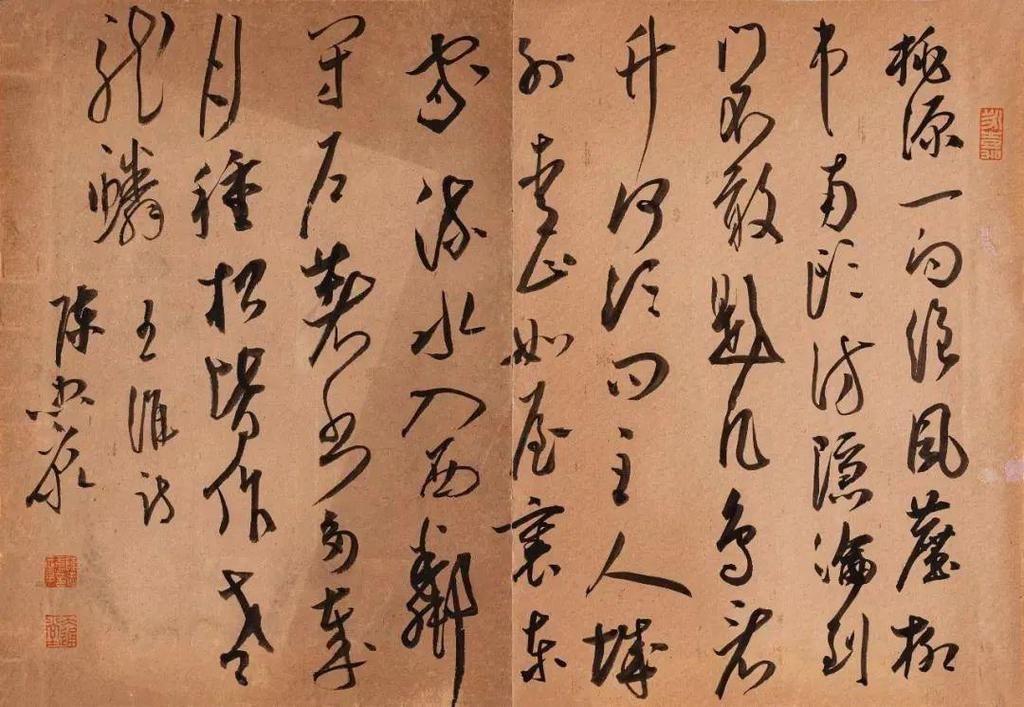 桃源一向絕風塵柳
市南頭訪隱淪到
門不敢題凡鳥看
竹何須問主人城
外青山如屋裏東
家流水入西鄰
閉戶著書多歲
月種松皆作老
龍鱗
王維詩
陳忠康